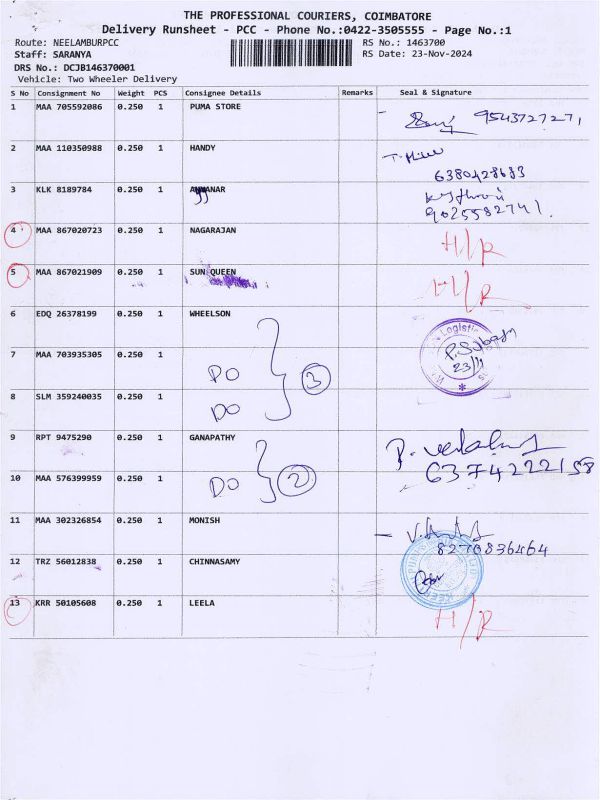 THE PROFESSIONAL COURIERS, COIMBATORE
Delivery Runsheet - PCC - Phone No.:0422-3505555 - Page No.:1
Route: NEELAMBURPCC RS No.: 1463700
Staff: SARANYA RS Date: 23-Nov-2024
DRS No.: DCJB146370001
Vehicle: Two Wheeler Delivery
S No Consignment No Weight PCS Consignee Details Remarks Seal & Signature
1 MAA 705592086 0.250 1 PUMA STORE 9543727271
2 MAA 110350988 0.250 1 HANDY
6380428683
3 KLK 8189784 0.250 1
9025582741.
4 MAA 867020723 0.250 1 NAGARAJAN H/R
5 MAA 867021909 0.250 1 SUN QUEEN H/R
6 EDQ 26378199 0.250 1 WHEELSON
7 MAA 703935305 0.250 1 DO 3
8 SLM 359240035 0.250 1 DO
9 RPT 9475290 0.250 1 GANAPATHY
6374222158
10 MAA 576399959 0.250 1 DO 2
11 MAA 302326854 0.250 1 MONISH
8270836464
12 TRZ 56012838 0.250 1 CHINNASAMY
13 KRR 50105608 0.250 1 LEELA H/R